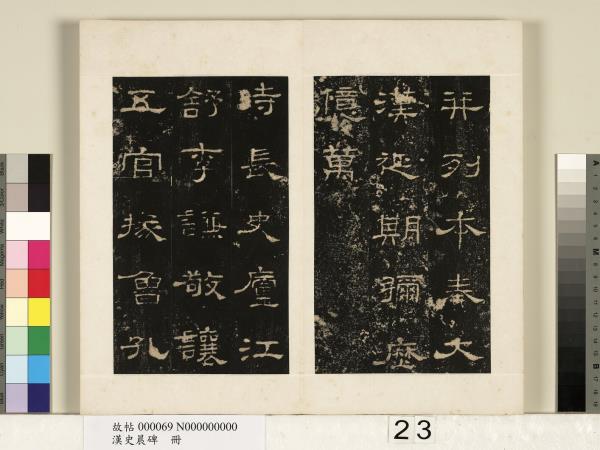 并列本奏大
漢延期彌歷
億萬
時長史廬江
舒李謙敬讓
五官掾魯孔
故帖 000069 N000000000
漢史晨碑 冊
23